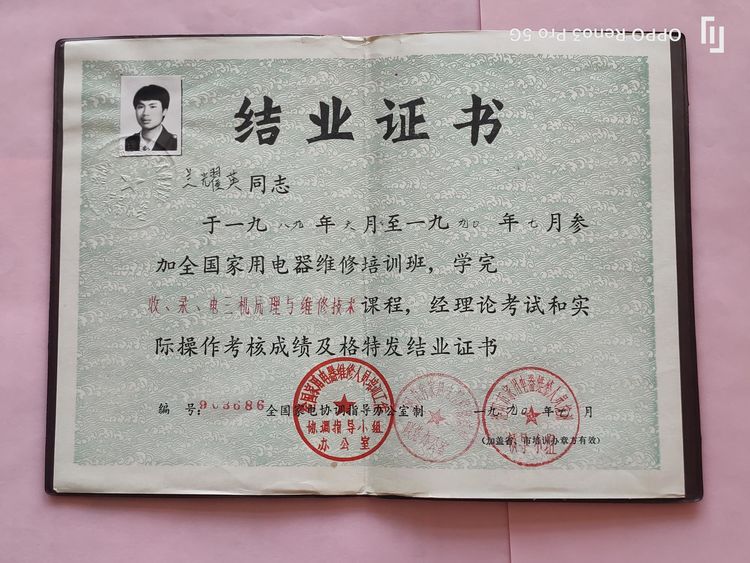 OPPO Reno3 Pro 5G
结业证书
吴耀英同志
于一九八九年六月至一九九〇年七月参
加全国家用电器维修培训班,学完
收、录、电三机原理与维修技术课程,经理论考试和实
际操作考核成绩及格特发结业证书
全国家用电器维修人员培训工作
协调指导小组
办公室
编号:903686 全国家电协调指导办公室制 一九九〇年七月
(加盖省、市培训办章方有效)